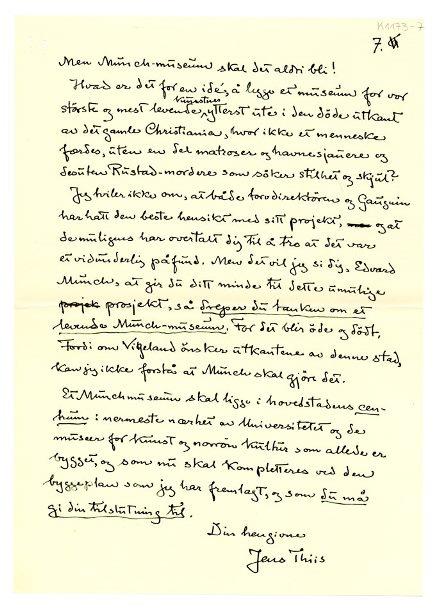 K1173-7
7.
Men Munch-museum skal det aldri bli!
Hvad er det for en idé, å legge et museum for vor
største og mest levende kunstner ytterst ute i den döde utkant
av det gamle Christiania, hvor ikke et menneske
færdes, uten en del matroser og havnesjauere og
desuten Rustad-mordere som söker stilhet og skjul?
Jeg tviler ikke om, at både torvdirektören og Gauguin
har hatt den beste hensikt med sitt projekt, og at
de muligens har overtalt dig til å tro at det var
et vidunderlig påfund. Men det vil jeg si dig, Edvard
Munch, at gir du ditt minde til dette umulige
projek prosjekt, så dreper du tanken om et
levende Munch-museum. For det blir öde og dödt.
Fordi om Vigeland önsker utkantene av denne stad,
kan jeg ikke forstå at Munch skal gjöre det.
Et Munchmuseum skal ligge i hovedstadens cen-
trum: nermeste nærhet av Universitetet og de
museer for kunst og norrön kultur som allerede er
bygget, og som nu skal kompletteres ved den
byggeplan som jeg har fremlagt, og som du må
gi din tilslutning til.
Din hengivne
Jens Thiis